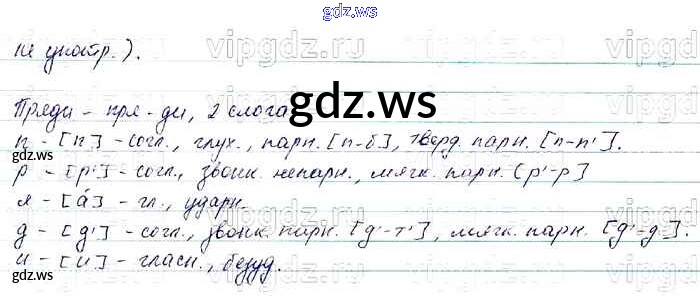 gdz.ws
не употр.).
vipgdz.ru vipgdz.ru vipgdz.ru
gdz.ws
Пряди - пря-ди, 2 слога
п - [п] - согл., глух., парн. [п-б], тверд. парн. [п-п'].
р - [р'] - согл., звонк. непарн., мягк. парн. [р'-р]
я - [а́] - гл., ударн.
д - [д'] - согл., звонк. парн. [д'-т'], мягк. парн. [д'-д].
и - [и] - гласн., безуд.
vipgdz.ru vipgdz.ru vipgdz.ru
gdz.ws